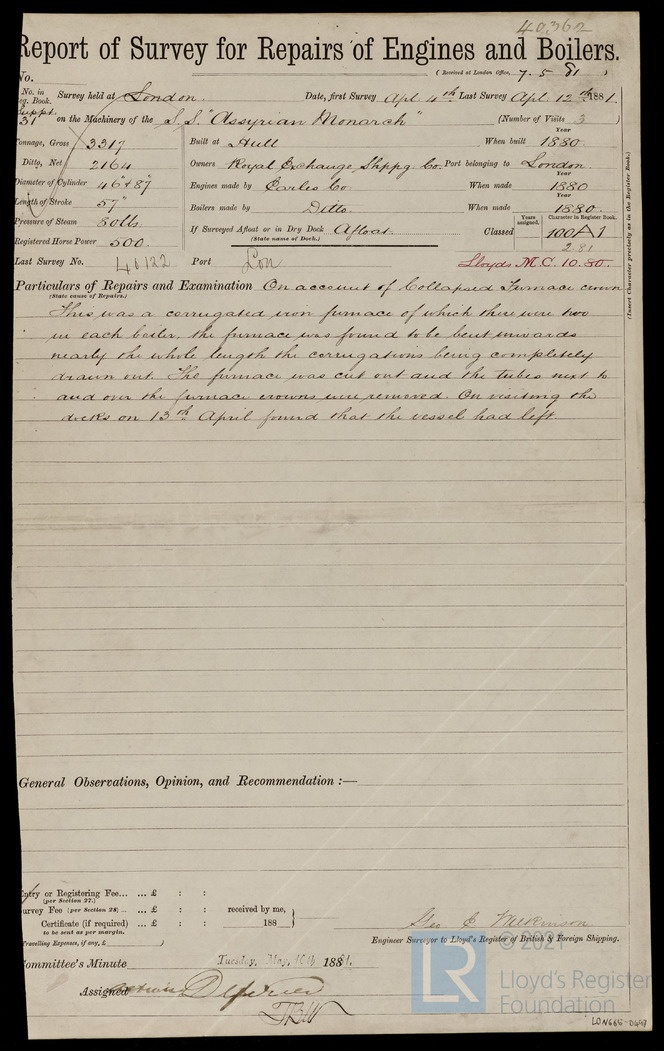 40362
Report of Survey for Repairs of Engines and Boilers.
No. (Received at London Office, 7.5.81)
No. in Reg. Book. Survey held at London. Date, first Survey Apl. 4th Last Survey Apl. 12th 1881.
Suppt. 31 on the Machinery of the S.S. "Assyrian Monarch" (Number of Visits 3)
Tonnage, Gross 3317 Built at Hull When built Year 1880
Ditto, Net 2164 Owners Royal Exchange Shppg. Co. Port belonging to London
Diameter of Cylinder 46" & 87" Engines made by Earles Co. When made Year 1880
Length of Stroke 57" Boilers made by Ditto. When made Year 1880.
Pressure of Steam 80 lbs. If Surveyed Afloat or in Dry Dock Afloat. Classed Years assigned. Character in Register Book. 100A1
Registered Horse Power 500. (State name of Dock.) 2.81
Last Survey No. 40122 Port Lon Lloyds M.C. 10.80.
(Insert Character precisely as in the Register Book.)
Particulars of Repairs and Examination On account of Collapsed Furnace crown
(State cause of Repairs.)
This was a corrugated iron furnace of which there were two
in each boiler, the furnace was found to be bent inwards
nearly the whole length the corrugations being completely
drawn out. The furnace was cut out and the tubes next to
and over the furnace crowns were removed. On visiting the
docks on 13th April found that the vessel had left
General Observations, Opinion, and Recommendation :—
Entry or Registering Fee... ... £ : :
(per Section 27.)
Survey Fee (per Section 28) ... ... £ : : received by me,
Certificate (if required) ... £ : : 188
to be sent as per margin.
(Travelling Expenses, if any, £ )
Geo E Wilkinson
Engineer Surveyor to Lloyd's Register of British & Foreign Shipping.
Committee's Minute Tuesday, May, 10th 1881.
Assigned
© 2021
LR
Lloyd's Register
Foundation
LON666-0697